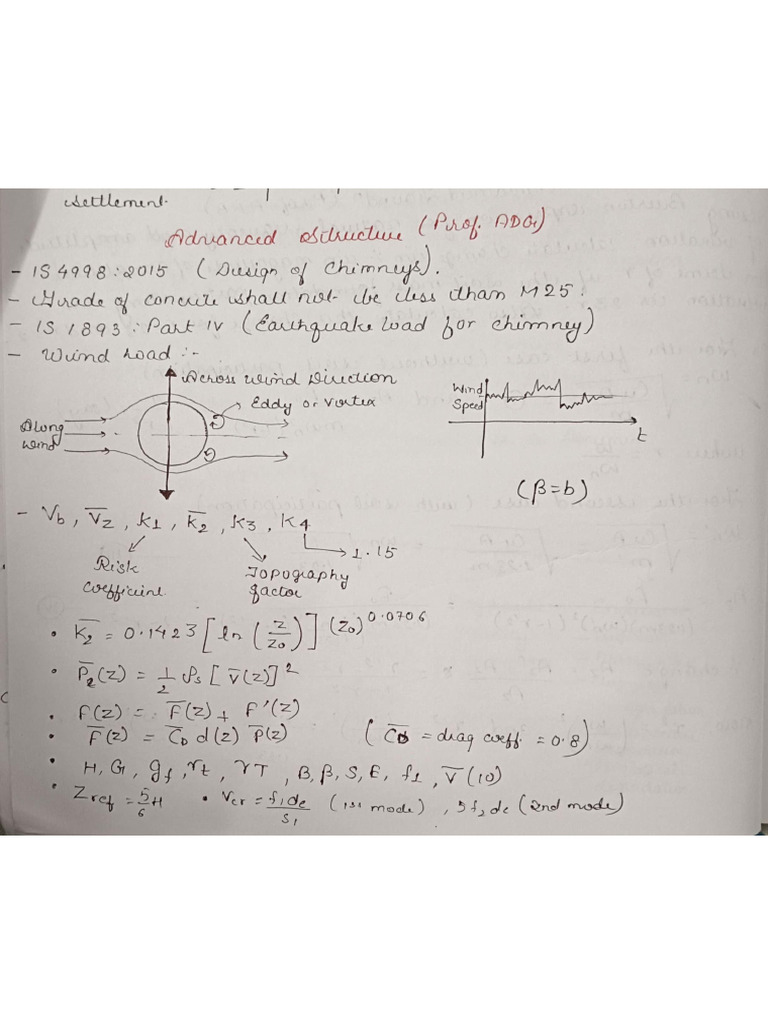 settlement.
Advanced Structure (Prof. ADG)
- IS 4998:2015 (Design of Chimneys).
- Grade of concrete shall not be less than M25.
- IS 1893: Part IV (Earthquake load for chimney)
- Wind Load :-
Across Wind Direction
Eddy or Vortex
Along Wind
Wind Speed
t
(β=b)
- Vb, V̅z, K1, K̅2, K3, K4
1.15
Risk coefficient
Topography factor
• K̅2 = 0.1423 [ln (z/z0)] (z0)^0.0706
• P̅z(z) = 1/2 ρs [V̅(z)]^2
• F(z) = F̅(z) + F'(z)
• F̅(z) = C̅D d(z) P̅(z) (C̅D = drag coeff. = 0.8)
• H, G, gf, rt, rT, B, β, S, E, f1, V̅(10)
• Zref = 5/6 H • Vcr = f1de/S1 (1st mode), 5f2de (2nd mode)